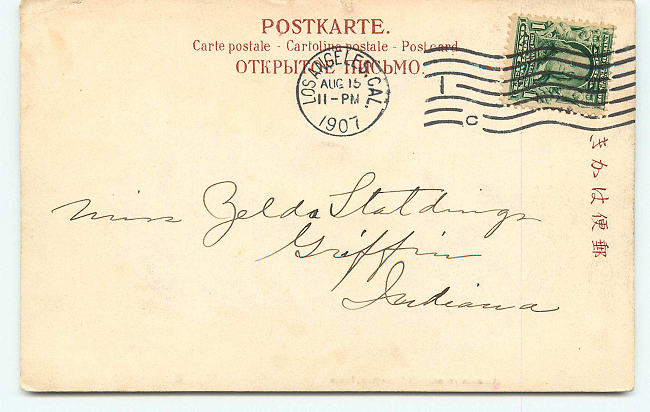 POSTKARTE.
Carte postale - Cartolina postale - Post card
ОТКРЫТОЕ ПИСЬМО.
LOS ANGELES, CAL.
AUG 15
11-PM
1907
1
C
きかは便郵
Miss Zelda
Griffin
Indiana